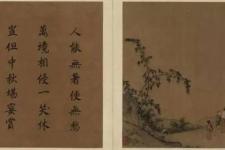 人能無著便無愁
萬境相侵一笑休
豈但中秋堪宴賞